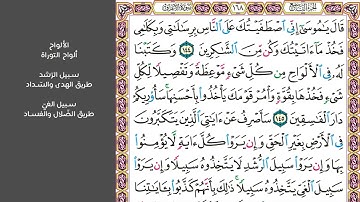 قَالَ يَٰمُوسَىٰٓ إِنِّى ٱصْطَفَيْتُكَ عَلَى ٱلنَّاسِ بِرِسَٰلَٰتِى وَبِكَلَٰمِى
فَخُذْ مَآ ءَاتَيْتُكَ وَكُن مِّنَ ٱلشَّٰكِرِينَ ١٤٤ وَكَتَبْنَا
لَهُۥ فِى ٱلْأَلْوَاحِ مِن كُلِّ شَىْءٍ مَّوْعِظَةً وَتَفْصِيلًا لِّكُلِّ
شَىْءٍ فَخُذْهَا بِقُوَّةٍ وَأْمُرْ قَوْمَكَ يَأْخُذُوا۟ بِأَحْسَنِهَا سَأُو۟رِيكُمْ
دَارَ ٱلْفَٰسِقِينَ ١٤٥ سَأَصْرِفُ عَنْ ءَايَٰتِىَ ٱلَّذِينَ يَتَكَبَّرُونَ
فِى ٱلْأَرْضِ بِغَيْرِ ٱلْحَقِّ وَإِن يَرَوْا۟ كُلَّ ءَايَةٍ لَّا يُؤْمِنُوا۟
بِهَا وَإِن يَرَوْا۟ سَبِيلَ ٱلرُّشْدِ لَا يَتَّخِذُوهُ سَبِيلًا وَإِن يَرَوْا۟
سَبِيلَ ٱلْغَىِّ يَتَّخِذُوهُ سَبِيلًا ذَٰلِكَ بِأَنَّهُمْ كَذَّبُوا۟ بِـَٔايَٰتِنَا
الألواح
ألواح التوراة
سبيل الرشد
طريق الهدى والسداد
سبيل الغي
طريق الضلال والفساد
١٦٨